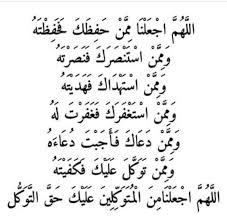 اللَّهُمَّ اجْعَلْنَا مِمَّنْ حَفِظَكَ فَحَفِظْتَهُ
وَمِمَّنْ اسْتَنْصَرَكَ فَنَصَرْتَهُ
وَمِمَّنْ اسْتَهْدَاكَ فَهَدَيْتَهُ
وَمِمَّنْ اسْتَغْفَرَكَ فَغَفَرْتَ لَهُ
وَمِمَّنْ دَعَاكَ فَأَجَبْتَ دُعَاءَهُ
وَمِمَّنْ تَوَكَّلَ عَلَيْكَ فَكَفَيْتَهُ
اللَّهُمَّ اجْعَلْنَامِنَ الْمُتَوَكِّلِينَ عَلَيْكَ حَقَّ التَّوَكُّلِ